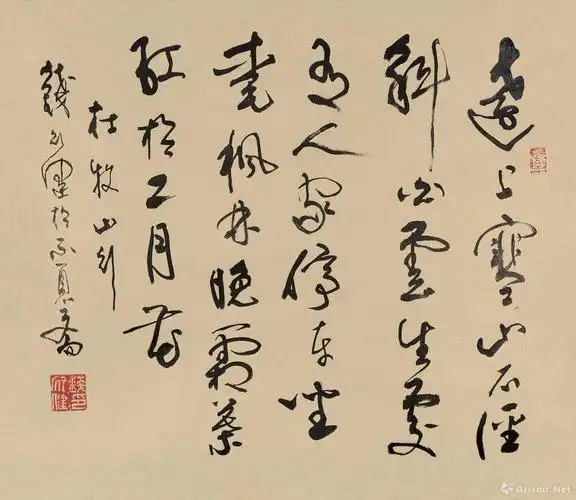 遠上寒山石徑
斜白雲生處
有人家停車坐
愛楓林晚霜葉
紅於二月花
杜牧山行
錢行健於齋
錢印行健
Artron.Net